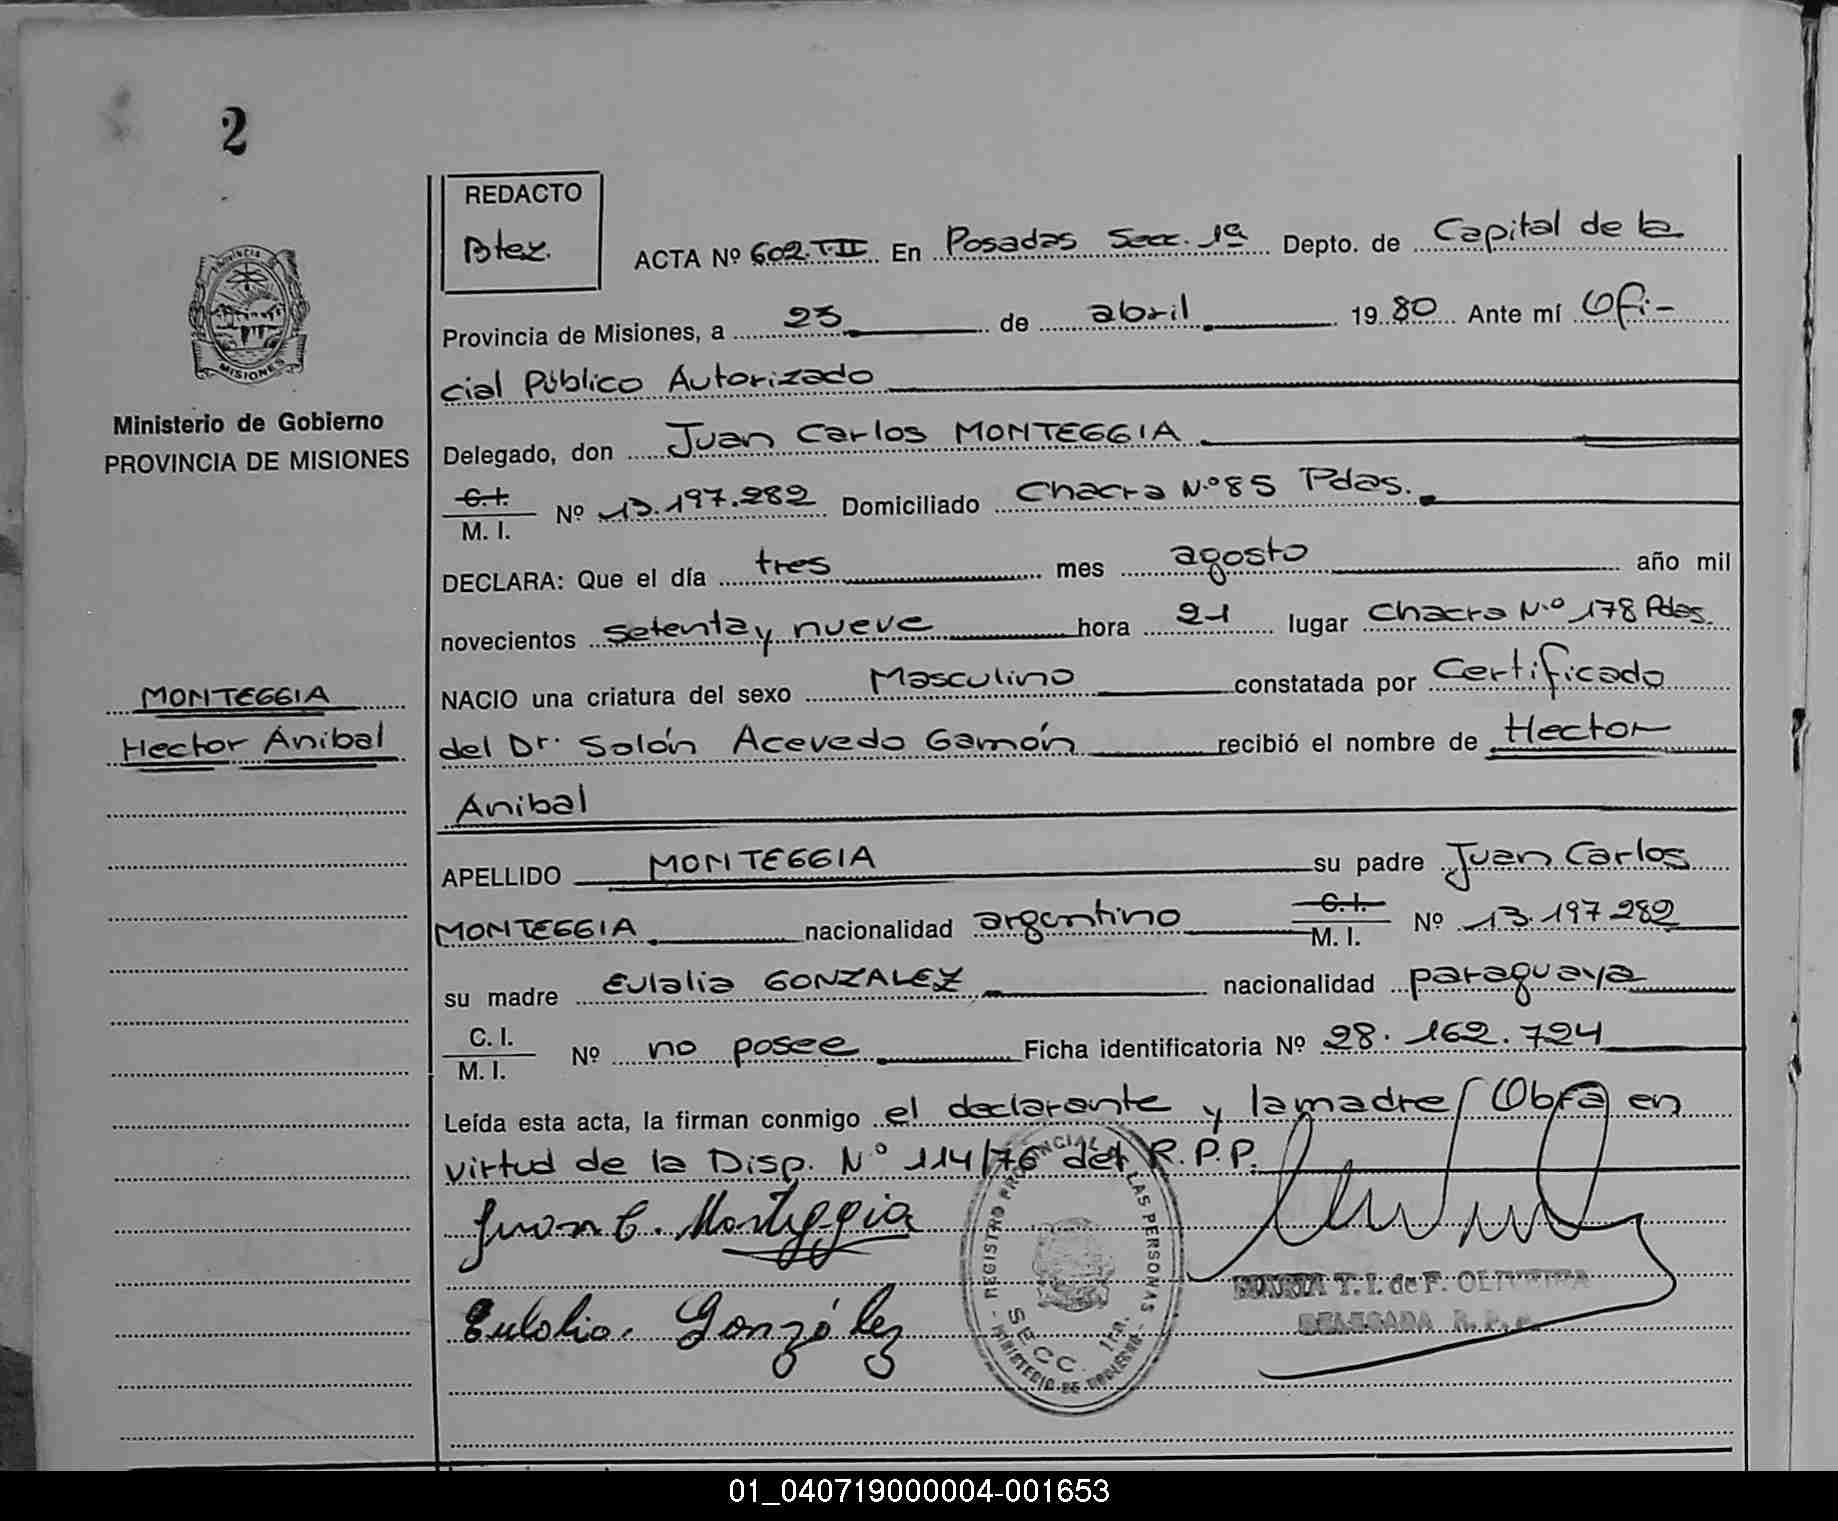 2
REDACTO
Btez.
ACTA Nº 602.T.II En Posadas Secc. 1ª Depto. de Capital de la
Provincia de Misiones, a 23 de abril 1980 Ante mí Ofi-
cial Público Autorizado
Delegado, don Juan Carlos MONTEGGIA
C.I. M. I. Nº 13.197.282 Domiciliado Chacra N.º 85 Pdas.
DECLARA: Que el día tres mes agosto año mil
novecientos setenta y nueve hora 21 lugar Chacra N.º 178 Pdas.
NACIO una criatura del sexo Masculino constatada por Certificado
del Dr. Solón Acevedo Gamón recibió el nombre de Hector
Anibal
APELLIDO MONTEGGIA su padre Juan Carlos
MONTEGGIA nacionalidad argentino C.I. M. I. Nº 13.197.282
su madre Eulalia GONZALEZ nacionalidad paraguaya
C. I. M. I. Nº no posee Ficha identificatoria Nº 28.162.724
Leída esta acta, la firman conmigo el declarante y la madre/ Obra en
virtud de la Disp. N.º 114/76 del R.P.P.
Juan C. Monteggia
Eulalia González
PROVINCIA DE
MISIONES
Ministerio de Gobierno
PROVINCIA DE MISIONES
MONTEGGIA
Hector Anibal
REGISTRO PROVINCIAL DE LAS PERSONAS
SECC. 1ra.
MINISTERIO DE GOBIERNO
MARIA T. I. de F. OLIVEIRA
DELEGADA R. P. P.
01_040719000004-001653